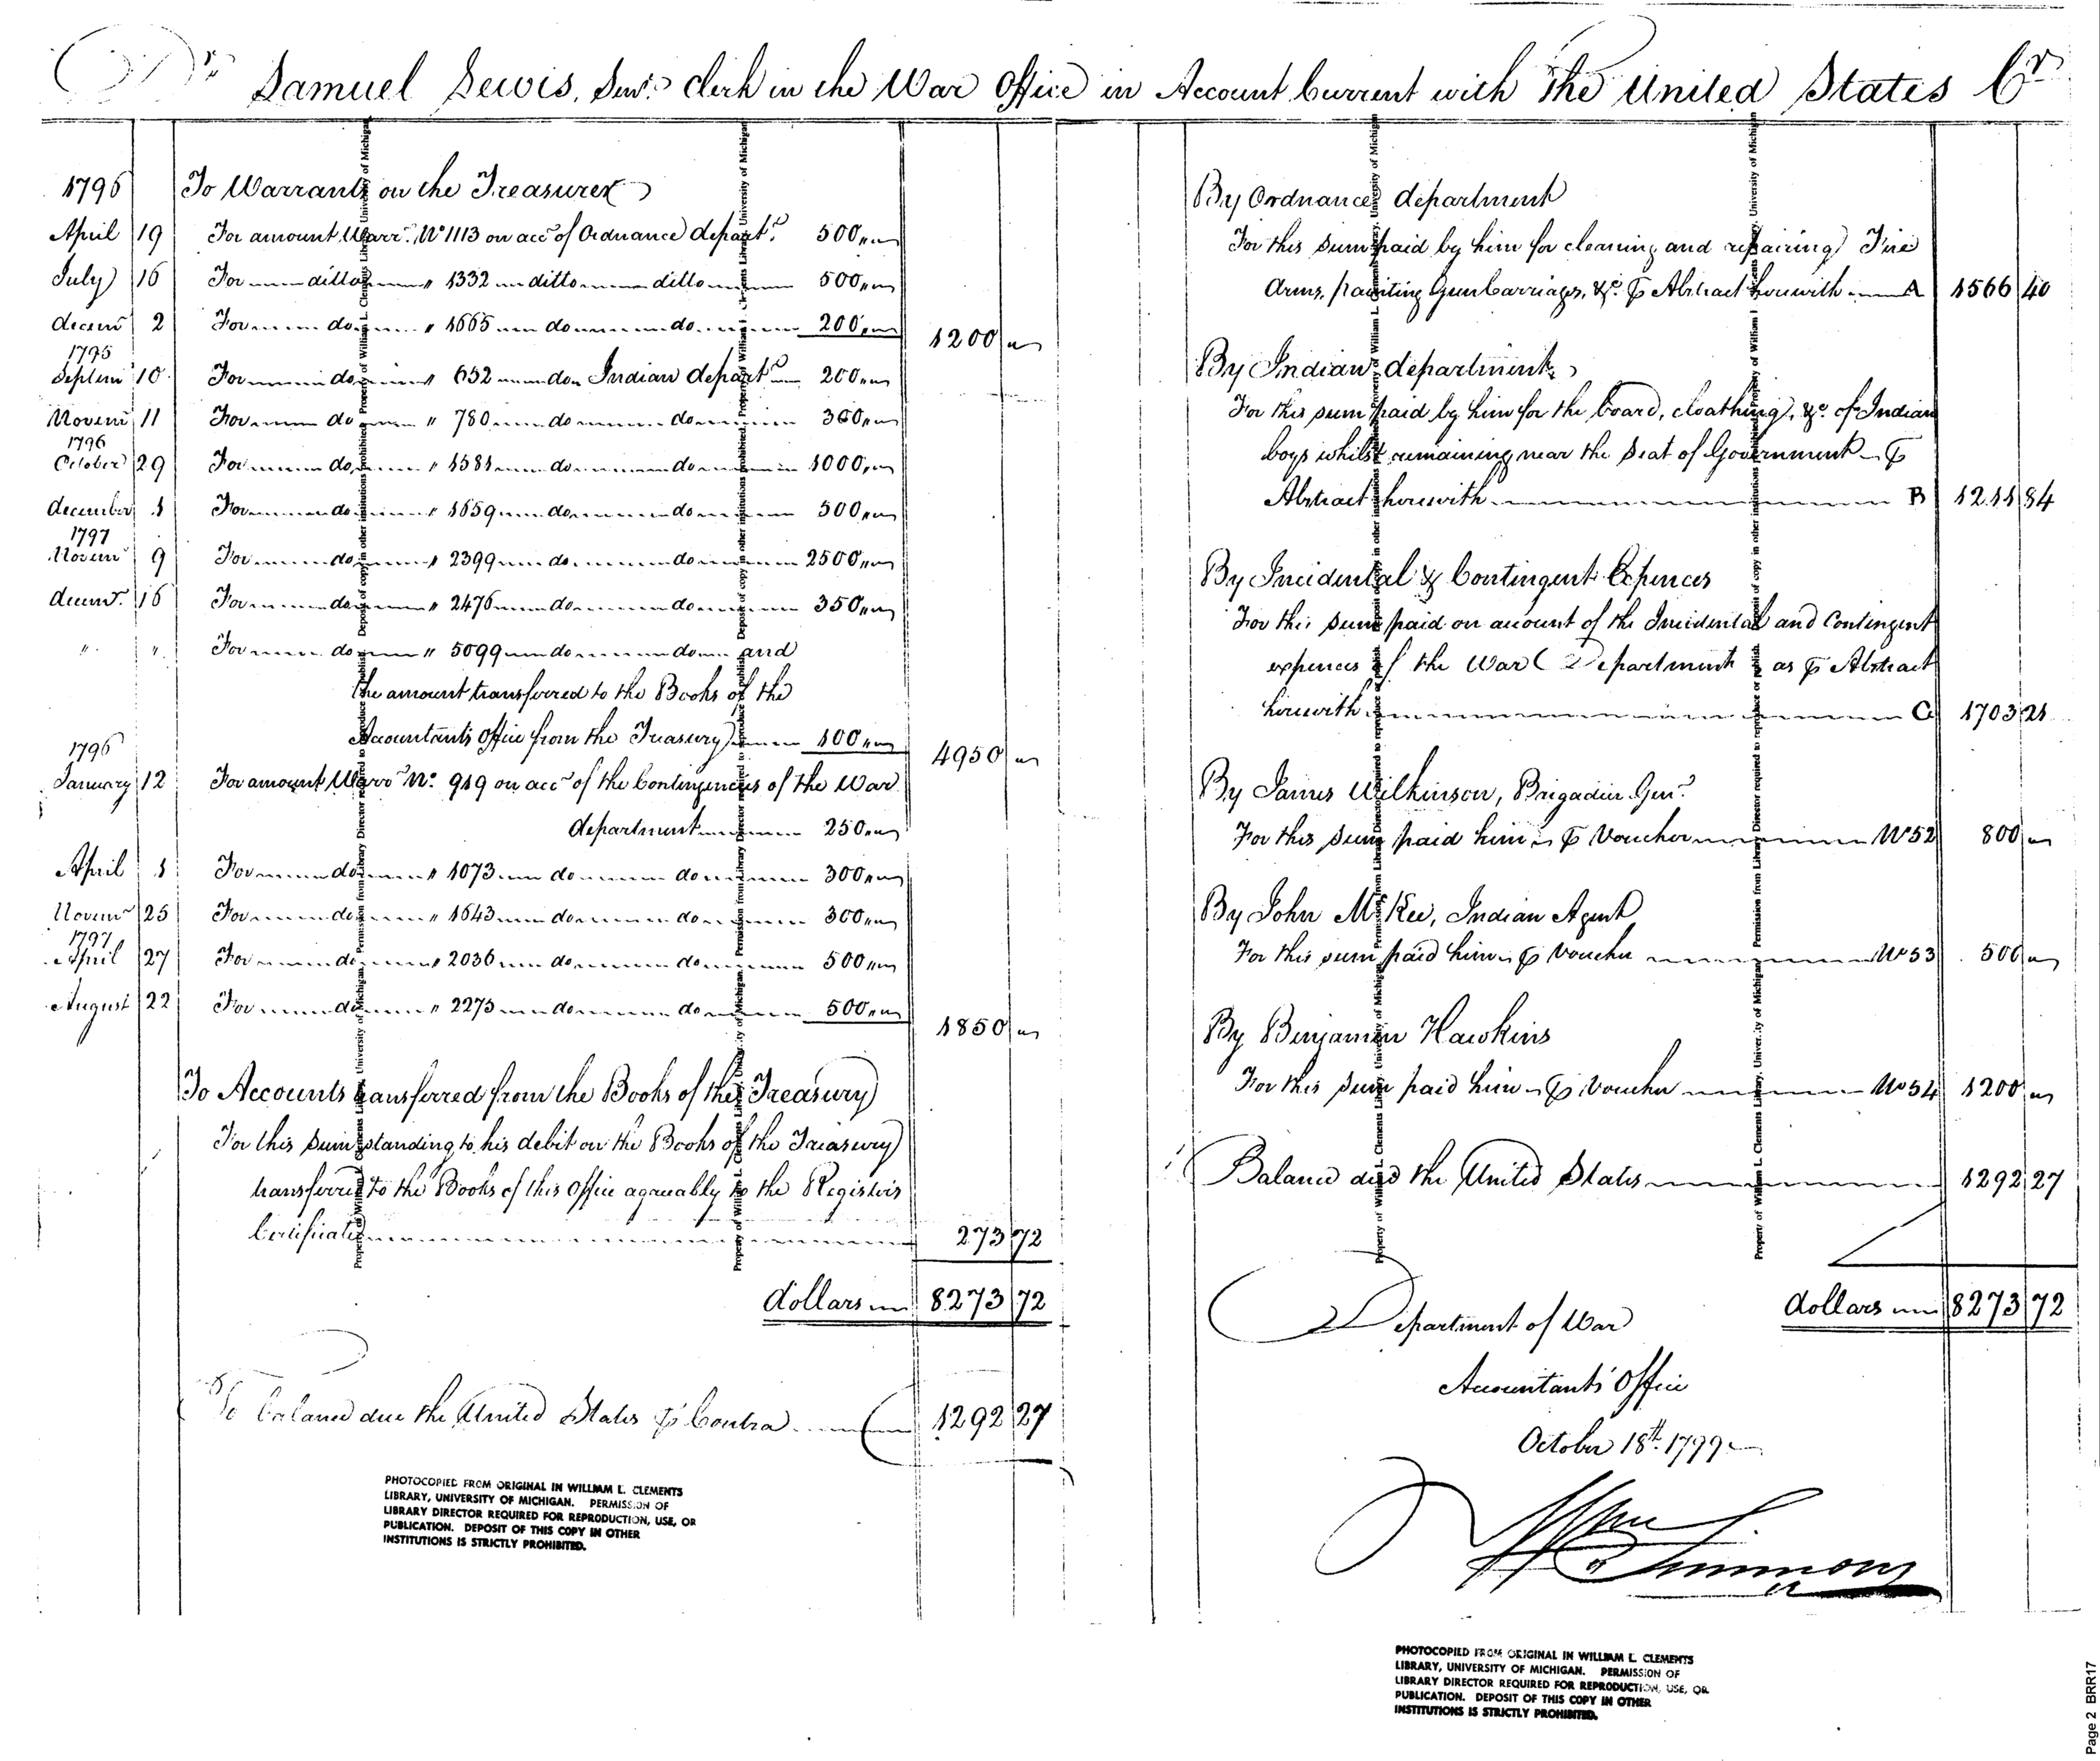 Dr. Samuel Lewis, Senr. Clerk in the War Office in Account Current with The United States Cr.
1796 To Warrants on the Treasurer
April 19 For amount Warrt. No 1113 on acct of Ordnance departt. 500
July 16 For ditto " 1332 ditto ditto 500
decemr 2 For do " 1665 do do 200 1200
1795
Septemr 10 For do " 652 do Indian departt 200
Novemr 11 For do " 780 do do 300
1796
October 29 For do " 1581 do do 1000
december 1 For do " 1659 do do 500
1797
Novemr 9 For do " 2399 do do 2500
decemr. 16 For do " 2476 do do 350
" " For do " 5099 do do and
the amount transferred to the Books of the
Accountants Office from the Treasury 100 4950
1796
January 12 For amount Warrt No. 919 on acct of the Contingencies of the War
department 250
April 1 For do " 1073 do do 300
Novemr 25 For do " 1643 do do 300
1797
April 27 For do " 2036 do do 500
August 22 For do " 2275 do do 500 1850
To Accounts transferred from the Books of the Treasury
For this sum standing to his debit on the Books of the Treasury
transferred to the Books of this Office agreeably to the Registers
Certificate 273 72
dollars 8273 72
To balance due the United States P Contra 1292 27
By Ordnance department
For this sum paid by him for cleaning and repairing Fire
Arms, painting Gun Carriages, &c. P Abstract herewith A 1566 40
By Indian department
For this sum paid by him for the board, cloathing, &c. of Indian
boys whilst remaining near the Seat of Government P
Abstract herewith B 1211 84
By Incidental & Contingent Expences
For this sum paid on account of the Incidental and Contingent
expences of the War Department as P Abstract
herewith C 1703 21
By James Wilkinson, Brigadier Genl.
For this sum paid him P Voucher No 52 800
By John McKee, Indian Agent
For this sum paid him P Voucher No 53 500
By Benjamin Hawkins
For this sum paid him P Voucher No 54 1200
Balance due the United States 1292 27
dollars 8273 72
Department of War
Accountants Office
October 18th. 1799
Wm Simmons
PHOTOCOPIED FROM ORIGINAL IN WILLIAM L. CLEMENTS
LIBRARY, UNIVERSITY OF MICHIGAN. PERMISSION OF
LIBRARY DIRECTOR REQUIRED FOR REPRODUCTION, USE, OR
PUBLICATION. DEPOSIT OF THIS COPY IN OTHER
INSTITUTIONS IS STRICTLY PROHIBITED.
PHOTOCOPIED FROM ORIGINAL IN WILLIAM L. CLEMENTS
LIBRARY, UNIVERSITY OF MICHIGAN. PERMISSION OF
LIBRARY DIRECTOR REQUIRED FOR REPRODUCTION, USE, OR
PUBLICATION. DEPOSIT OF THIS COPY IN OTHER
INSTITUTIONS IS STRICTLY PROHIBITED.
Page 2 BRR17